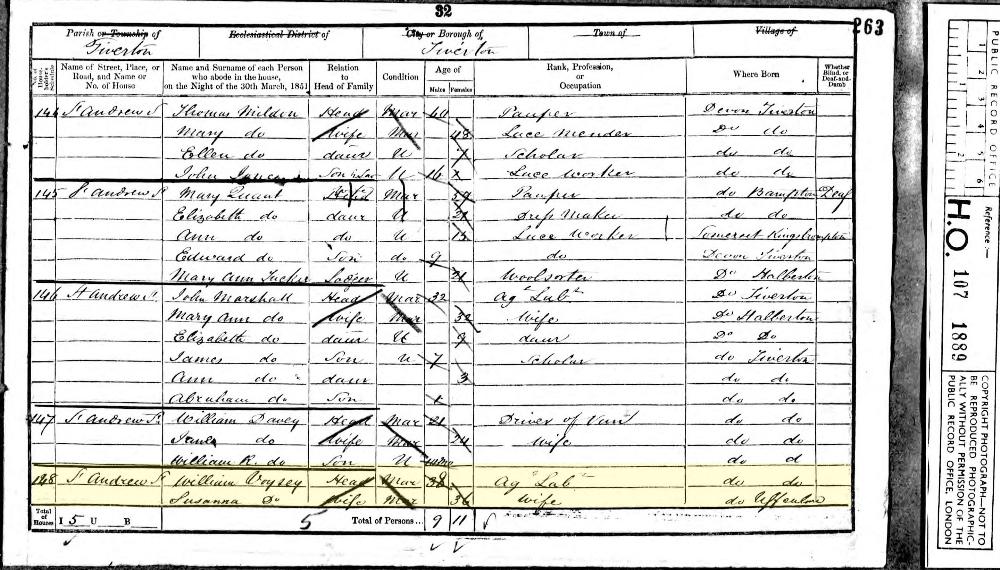 32
263
Parish or Township of Ecclesiastical District of City or Borough of Town of Village of
Tiverton Tiverton
No. of House-holder's Schedule Name of Street, Place, or Road, and Name or No. of House Name and Surname of each Person who abode in the house, on the Night of the 30th March, 1851 Relation to Head of Family Condition Age of Males Females Rank, Profession, or Occupation Where Born Whether Blind, or Deaf-and-Dumb
144 St Andrew St Thomas Milden Head Mar 60 Pauper Devon Tiverton
Mary do Wife Mar 48 Lace Mender Do do
Ellen do daur U 7 Scholar do do
John Son U 16 Lace Worker do do
145 St Andrew St Mary Quant Head Mar 57 Pauper do Bampton Deaf
Elizabeth do daur U 21 Dress Maker do do
Ann do do U 13 Lace Worker Somerset Kingsbrompton
Edward do Son do 9 do Devon Tiverton
Mary Ann Tucker Lodger U 21 Woolsorter Do Halberton
146 St Andrew St John Marshall Head Mar 32 Ag Lab Do Tiverton
Mary Ann do Wife Mar 32 Wife Do Halberton
Elizabeth do daur U 9 daur Do Do
James do Son U 7 Scholar do Tiverton
Ann do daur 3 do do
Abraham do Son 1 do do
147 St Andrew St William Davey Head Mar 21 Driver of Van do do
Jane do Wife Mar 24 Wife do do
William R. do Son U do d
148 St Andrew St William Voysey Head Mar 38 Ag Lab do do
Susanna Do Wife Mar 36 Wife do Uffculm
Total of Houses I 5 U B 5 Total of Persons... 9 11
PUBLIC RECORD OFFICE
1 2 3 4 5 6
Reference :-
H.O. 107 1889
COPYRIGHT PHOTOGRAPH—NOT TO BE REPRODUCED PHOTOGRAPHICALLY WITHOUT PERMISSION OF THE PUBLIC RECORD OFFICE, LONDON